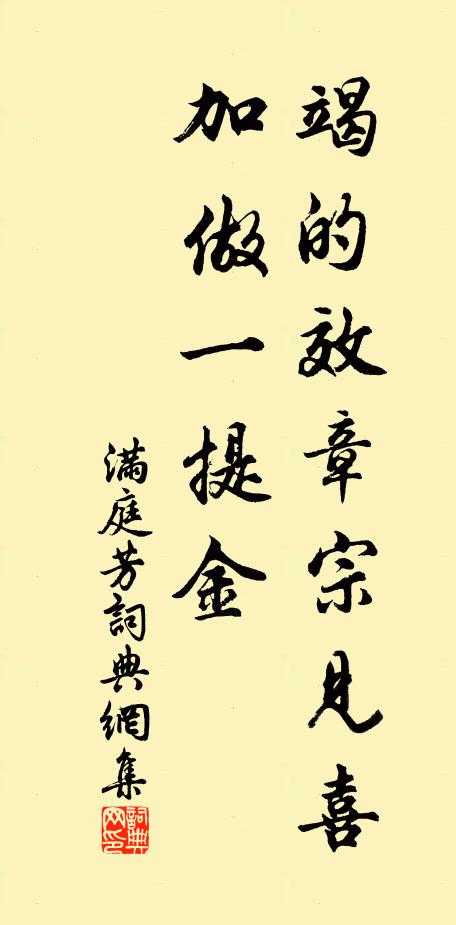 竭的效章宗見喜
加做一提金
滿庭芳詞典網集
詞典网印